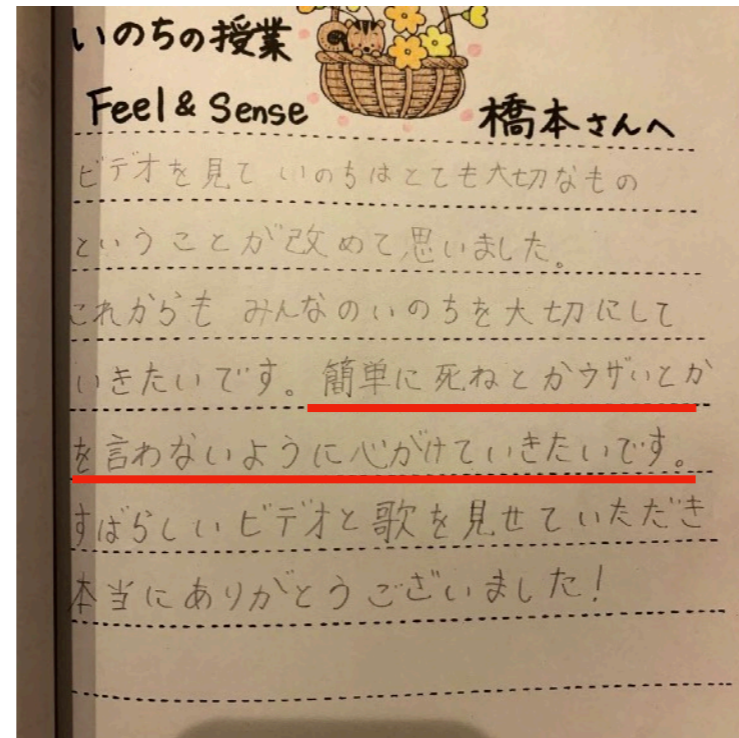 いのちの授業
Feel & Sense
橋本さんへ
ビデオを見て いのちはとても大切なもの
ということが改めて思いました。
これからも みんなのいのちを大切にして
いきたいです。簡単に死ねとかウザいとか
を言わないように心がけていきたいです。
すばらしいビデオと歌を見せていただき
本当にありがとうございました！